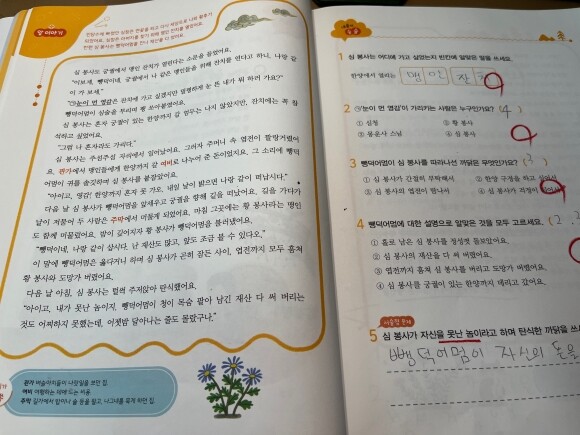 앞 이야기
심 봉사도 궁궐에서 맹인 잔치가 열린다는 소문을 들었어요.
"이보게, 뺑덕이네. 궁궐에서 나 같은 맹인들을 위해 잔치를 연다고 하니, 나랑 같
이 가 보세."
"㉠눈이 먼 영감은 잔치에 가고 싶겠지만 멀쩡하게 눈 뜬 내가 뭐 하러 가요?"
뺑덕어멈이 심술을 부리며 쌩 쏘아붙였어요.
심 봉사는 혼자 궁궐이 있는 한양까지 갈 엄두는 나지 않았지만, 잔치에는 꼭 참
석하고 싶었어요.
"그럼 나 혼자라도 가리다."
심 봉사는 주섬주섬 자리에서 일어났어요. 그러자 주머니 속 엽전이 짤랑거렸어
요. 관가에서 맹인들에게 한양까지 갈 여비로 나누어 준 돈이었지요. 그 소리에 뺑덕
어멈이 귀를 쫑긋하며 심 봉사를 붙잡았어요.
"아이고, 영감! 한양까지 혼자 못 가오. 내일 날이 밝으면 나랑 같이 떠납시다."
다음 날 심 봉사가 뺑덕어멈을 앞세우고 궁궐을 향해 길을 떠났어요. 길을 가다가
날이 저물어 두 사람은 주막에서 머물게 되었어요. 마침 그곳에는 황 봉사라는 맹인
도 함께 머물렀어요. 밤이 깊어지자 황 봉사가 뺑덕어멈을 불러냈어요.
"뺑덕이네, 나랑 같이 삽시다. 난 재산도 많고, 앞도 조금 볼 수 있다오."
이 말에 뺑덕어멈은 옳다구나 하며 심 봉사가 곤히 잠든 사이, 엽전까지 모두 훔쳐
황 봉사와 도망가 버렸어요.
다음 날 아침, 심 봉사는 털썩 주저앉아 탄식했어요.
"아이고, 내가 못난 놈이지. 뺑덕어멈이 청이 목숨 팔아 남긴 재산 다 써 버리는
것도 어찌하지 못했는데, 이젯밤 달아나는 줄도 몰랐구나."
관가 벼슬아치들이 나랏일을 보던 집.
여비 여행하는 데에 드는 비용.
주막 길가에서 밥이나 술 등을 팔고, 나그네를 묵게 하던 집.
1 심 봉사는 어디에 가고 싶었는지 빈칸에 알맞은 말을 쓰세요.
한양에서 열리는 맹인 잔치
2 ㉠'눈이 먼 영감'이 가리키는 사람은 누구인가요? (4)
① 심청 ② 황 봉사
③ 몽운사 스님 ④ 심 봉사
3 뺑덕어멈이 심 봉사를 따라나선 까닭은 무엇인가요? (3)
① 심 봉사가 간절히 부탁해서 ② 한양 구경을 하고 싶어서
③ 심 봉사의 엽전이 탐나서 ④ 심 봉사가 걱정이
4 뺑덕어멈에 대한 설명으로 알맞은 것을 모두 고르세요. (2,
① 홀로 남은 심 봉사를 정성껏 돌보았어요.
② 심 봉사의 재산을 다 써 버렸어요.
③ 엽전까지 훔쳐 심 봉사를 버리고 도망가 버렸어요.
④ 심 봉사를 궁궐이 있는 한양까지 데리고 갔어요.
서술형 문제
5 심 봉사가 자신을 못난 놈이라고 하며 탄식한 까닭을 쓰
뺑덕어멈이 자신의 돈을